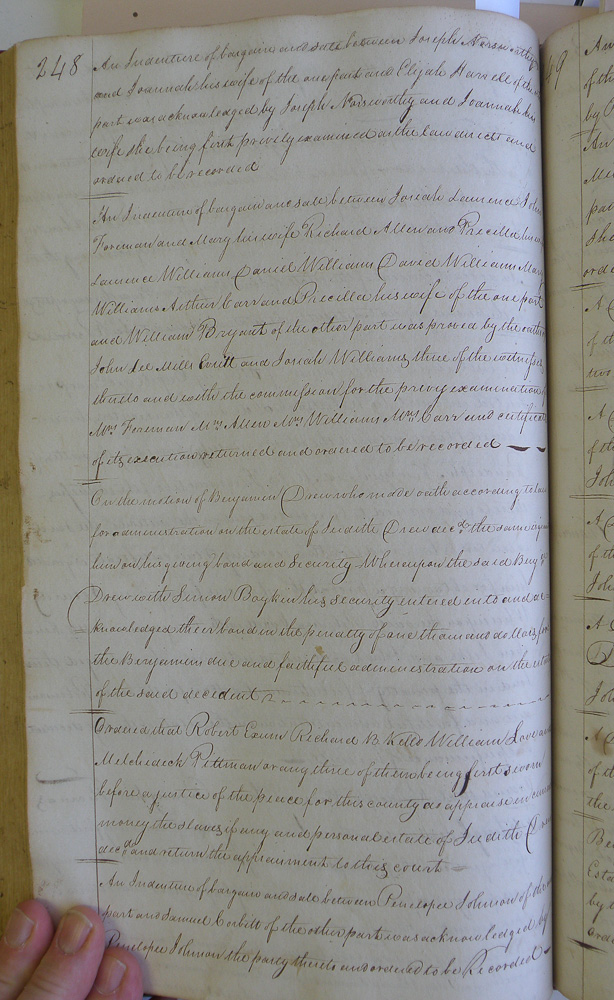 248
An Indenture of bargain and sale between Joseph Norsworthy
and Joannah his wife of the one part and Elijah Harrell of the
part was acknowledged by Joseph Norsworthy and Joannah his
wife she being first privily examined as the law directs and
ordered to be recorded
An Indenture of bargain and sale between Josiah Lawrence John
Foreman and Mary his wife Richard Allen and Priscilla his
Lawrence Williams Daniel Williams David Williams Mary
Williams Arthur Carr and Priscilla his wife of the one part
and William Bryant of the other part was proved by the oaths
John Lee Mills Evritt and Josiah Williams three of the witnesses
thereto and with the commission for the privy examination
Mrs Foreman Mrs Allen Mrs Williams Mrs Carr and certificate
of its execution returned and ordered to be recorded
On the motion of Benjamin Drew who made oath according to law
for administration on the estate of Judith Drew decd the same is
him on his giving bond and security Whereupon the said Benj
Drew with Simon Boykin his security entered into and ac-
knowledged their bond in the penalty of one thousand dollars for
the Benjamins due and faithful administration on the estate
of the said decedent
Ordered that Robert Exum Richard B Kello William Love and
Melchideck Pittman or any three of them being first sworn
before a justice of the peace for this county do appraise in
money the slaves if any and personal estate of Judith
decd and return the appraisment to this court
An Indenture of bargain and sale between Penelope Johnson of the
part and Samuel Corbitt of the other part was acknowledged by
Penelope Johnson the party thereto and ordered to be Recorded
49